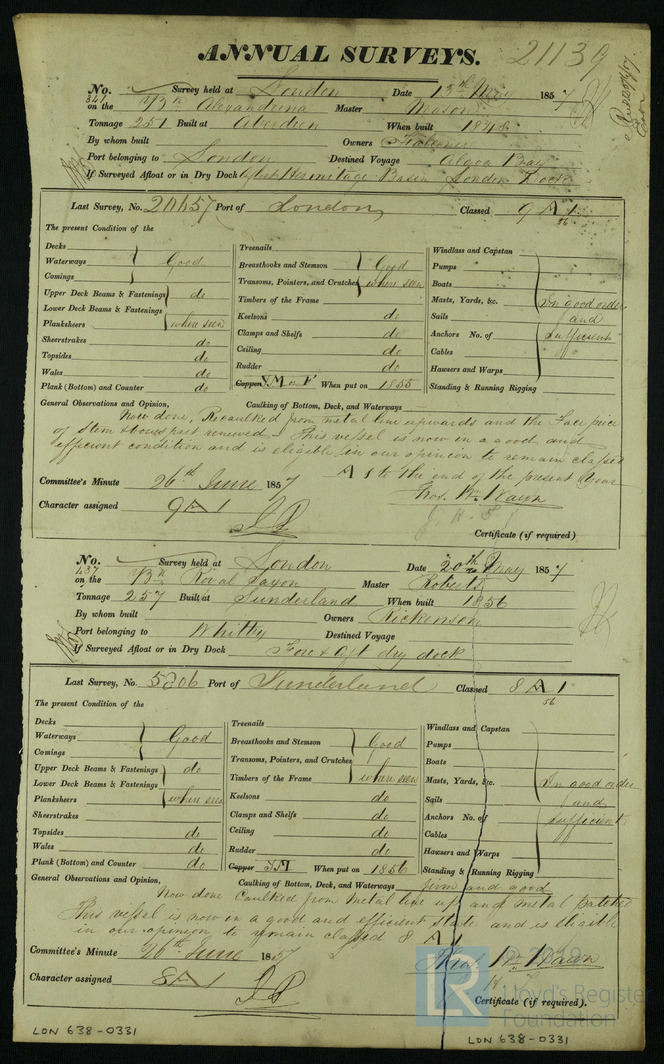 ANNUAL SURVEYS. 21139
No. 341 Survey held at London Date 13th May 1857
on the Bk Alexandrina Master Mason
Tonnage 251 Built at Aberdeen When built 1848
By whom built Owners Falconer
Port belonging to London Destined Voyage Algoa Bay
If Surveyed Afloat or in Dry Dock Afloat Hermitage Basin London Dock
Last Survey, No. 20457 Port of London Classed 9 A 1
56
The present Condition of the
Decks Treenails Windlass and Capstan
Waterways Good Breasthooks and Stemson Good Pumps
Comings Transoms, Pointers, and Crutches where seen Boats
Upper Deck Beams & Fastenings do Timbers of the Frame Masts, Yards, &c. In good order
Lower Deck Beams & Fastenings Keelsons do Sails and
Planksheers where seen Clamps and Shelfs do Anchors No. of sufficient
Sheerstrakes do Ceiling do Cables
Topsides do Rudder do Hawsers and Warps
Wales do Copper YM o F When put on 1855 Standing & Running Rigging
Plank (Bottom) and Counter do
General Observations and Opinion, Caulking of Bottom, Deck, and Waterways
Now done, Recaulked from metal line upwards and the Face piece
of Stem & renewed. This vessel is now in a good and
efficient condition and is eligible in our opinion to remain classed
A 1 to the end of the present year
Committee's Minute 26th June 1857
Thos. Wm. Wawn
Character assigned 9 A 1
Certificate (if required)
No. 437 Survey held at London Date 20th May 1857
on the Bk Royal Saxon Master Roberts
Tonnage 257 Built at Sunderland When built 1856
By whom built Owners Rickenson
Port belonging to Whitby Destined Voyage
If Surveyed Afloat or in Dry Dock Fore & Aft dry dock
Last Survey, No. 5206 Port of Sunderland Classed 8 A 1
56
The present Condition of the
Decks Treenails Windlass and Capstan
Waterways Good Breasthooks and Stemson Good Pumps
Comings Transoms, Pointers, and Crutches Boats
Upper Deck Beams & Fastenings do Timbers of the Frame where seen Masts, Yards, &c. In good order
Lower Deck Beams & Fastenings Keelsons do Sails and
Planksheers where seen Clamps and Shelfs do Anchors No. of sufficient
Sheerstrakes Ceiling do Cables
Topsides do Rudder do Hawsers and Warps
Wales do Copper YM When put on 1856 Standing & Running Rigging
Plank (Bottom) and Counter do
General Observations and Opinion, Caulking of Bottom, Deck, and Waterways firm and good
Now done Caulked from Metal line up and metal patched
This vessel is now in a good and efficient state and is eligible
in our opinion to remain classed 8 A 1
Committee's Minute 26th June 1857
Thos. Wm. Wawn
Character assigned 8 A 1
Certificate (if required).
LR Lloyd's Register
Foundation
LDN 638-0331 LDN 638-0331